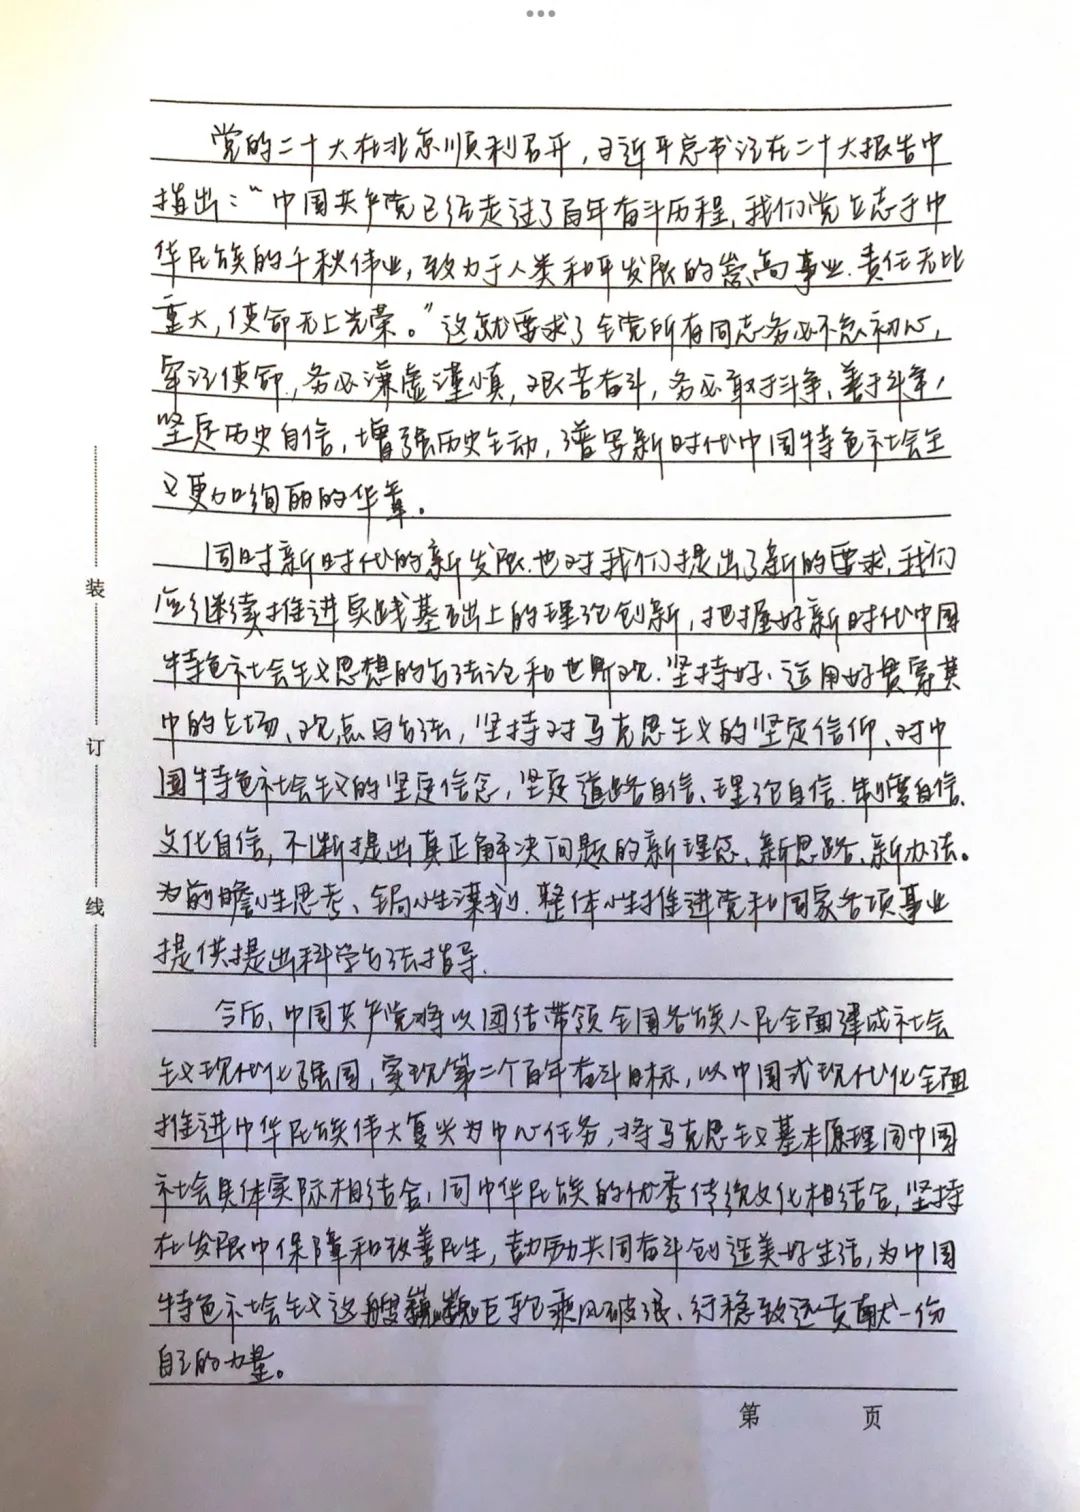 党的二十大在北京顺利召开，习近平总书记在二十大报告中
指出：“中国共产党已经走过了百年奋斗历程，我们党立志于中
华民族的千秋伟业，致力于人类和平发展的崇高事业.责任无比
重大，使命无上光荣。”这就要求了全党所有同志务必不忘初心，
牢记使命，务必谦虚谨慎，艰苦奋斗，务必敢于斗争、善于斗争，
坚定历史自信，增强历史主动，谱写新时代中国特色社会主
义更加绚丽的华章。
同时新时代的新发展.也对我们提出了新的要求，我们
应继续推进实践基础上的理论创新，把握好新时代中国
特色社会主义思想的方法论和世界观.坚持好、运用好贯穿其
中的立场、观点与方法，坚持对马克思主义的坚定信仰、对中
国特色社会主义的坚定信念，坚定道路自信、理论自信.制度自信、
文化自信，不断提出真正解决问题的新理念、新思路、新办法。
为前瞻性思考、全局性谋划.整体性推进党和国家各项事业
提供提出科学方法指导.
今后，中国共产党将以团结带领全国各族人民全面建成社会
主义现代化强国，实现第二个百年奋斗目标，以中国式现代化全面
推进中华民族伟大复兴为中心任务，将马克思主义基本原理同中国
社会具体实际相结合，同中华民族的优秀传统文化相结合，坚持
在发展中保障和改善民生，鼓励共同奋斗创造美好生活，为中国
特色社会主义这艘巍巍巨轮乘风破浪、行稳致远贡献一份
自己的力量。
装
订
线
第 页